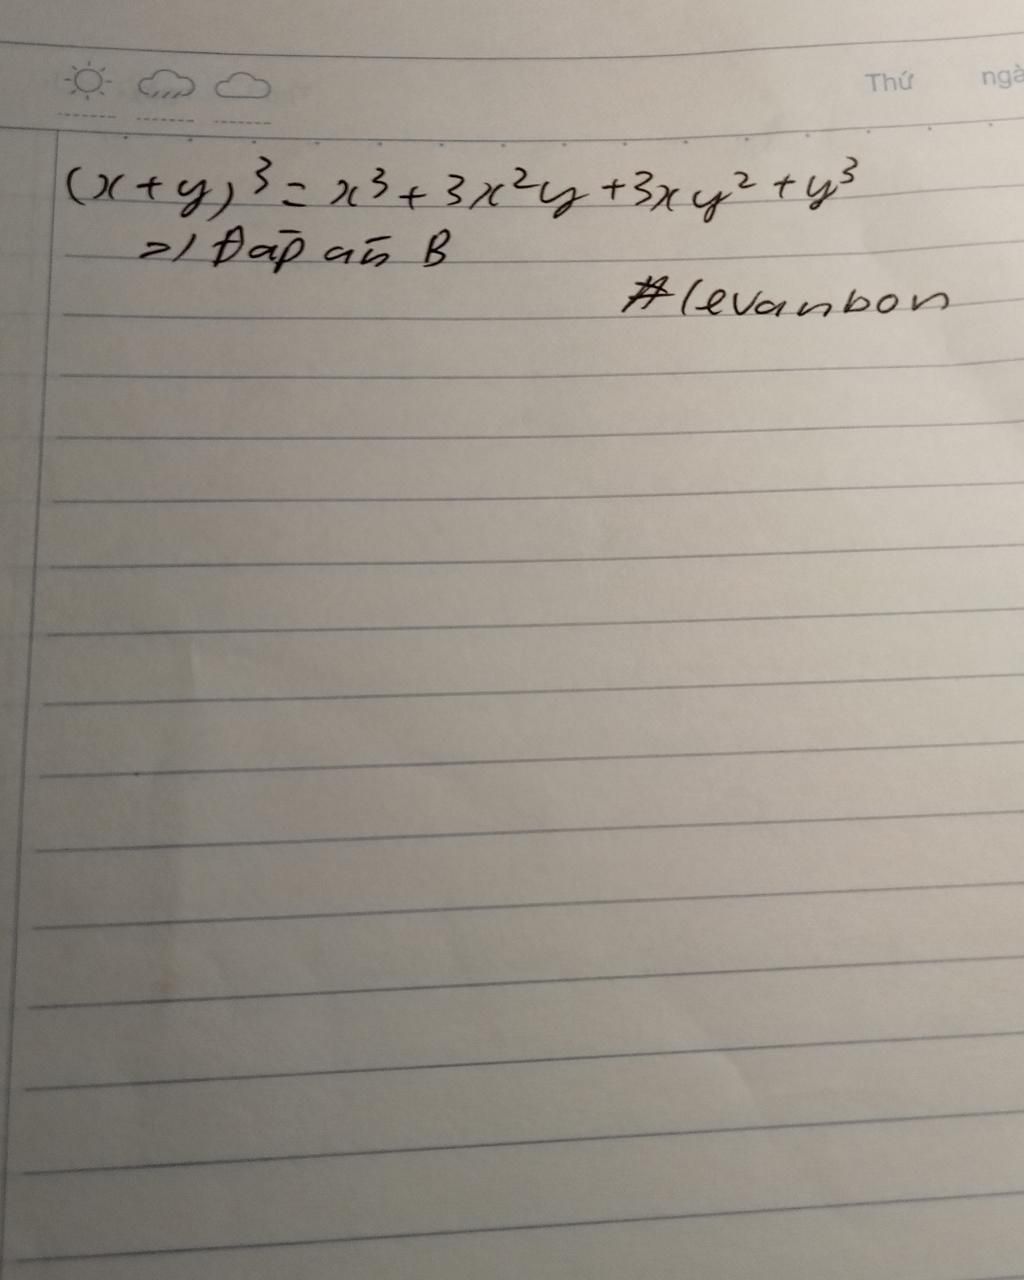 Thứ ngà
(x+y)³ = x³ + 3x²y + 3xy² + y³
=) Đáp án B
#levanbon